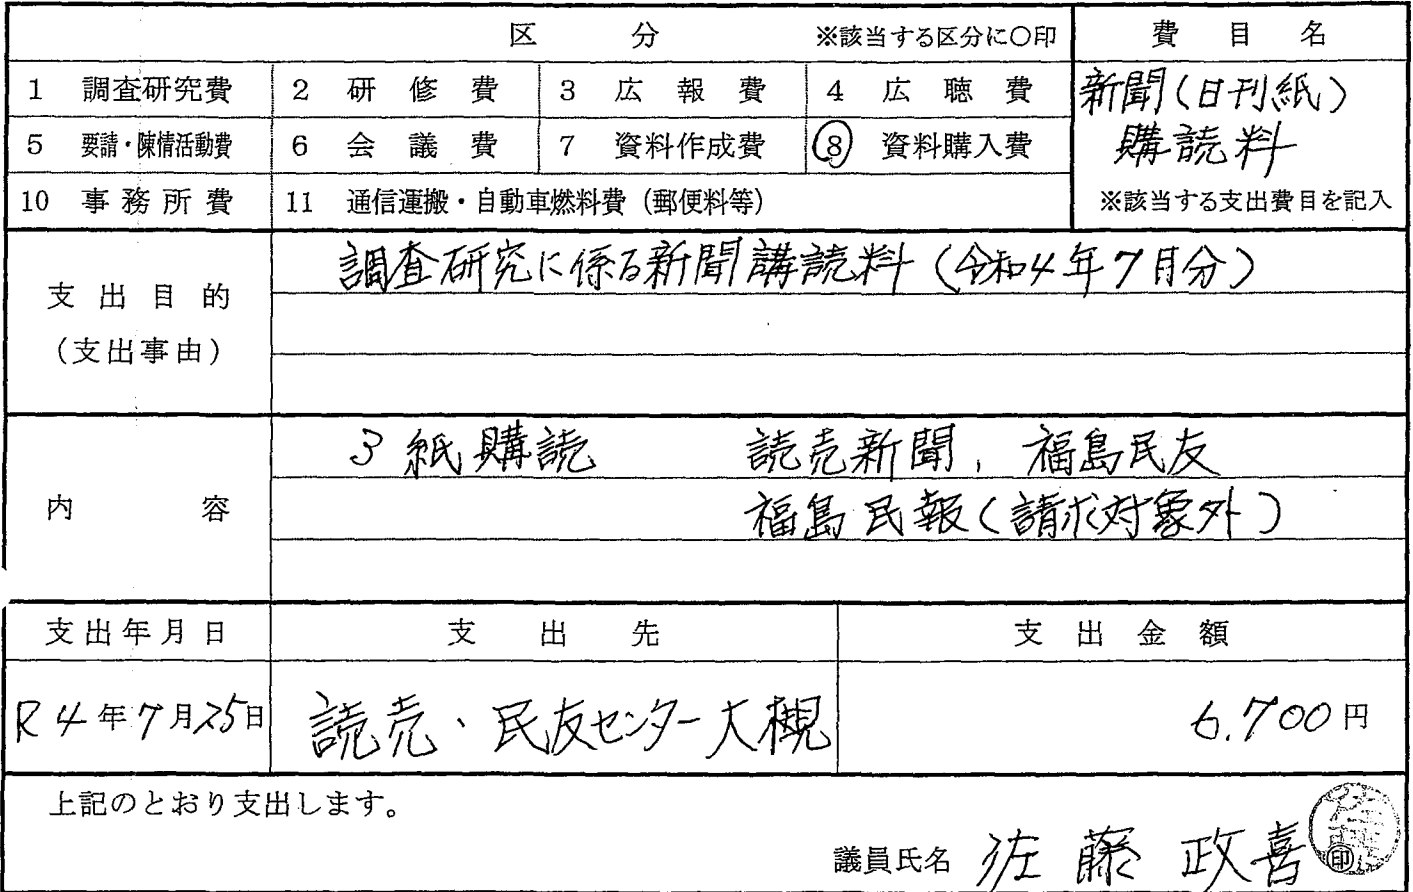 区 分 ※該当する区分に〇印 費 目 名
1 調査研究費 2 研 修 費 3 広 報 費 4 広 聴 費 新聞(日刊紙)
5 要請・陳情活動費 6 会 議 費 7 資料作成費 8 資料購入費 購読料
10 事 務 所 費 11 通信運搬・自動車燃料費(郵便料等) ※該当する支出費目を記入
支 出 目 的
(支出事由)
調査研究に係る新聞講読料(令和4年7月分)
内 容
3紙購読 読売新聞, 福島民友
福島民報(請求対象外)
支出年月日 支 出 先 支 出 金 額
R4年7月25日 読売・民友センター大槻 6.700円
上記のとおり支出します。
議員氏名 佐藤 政喜 印